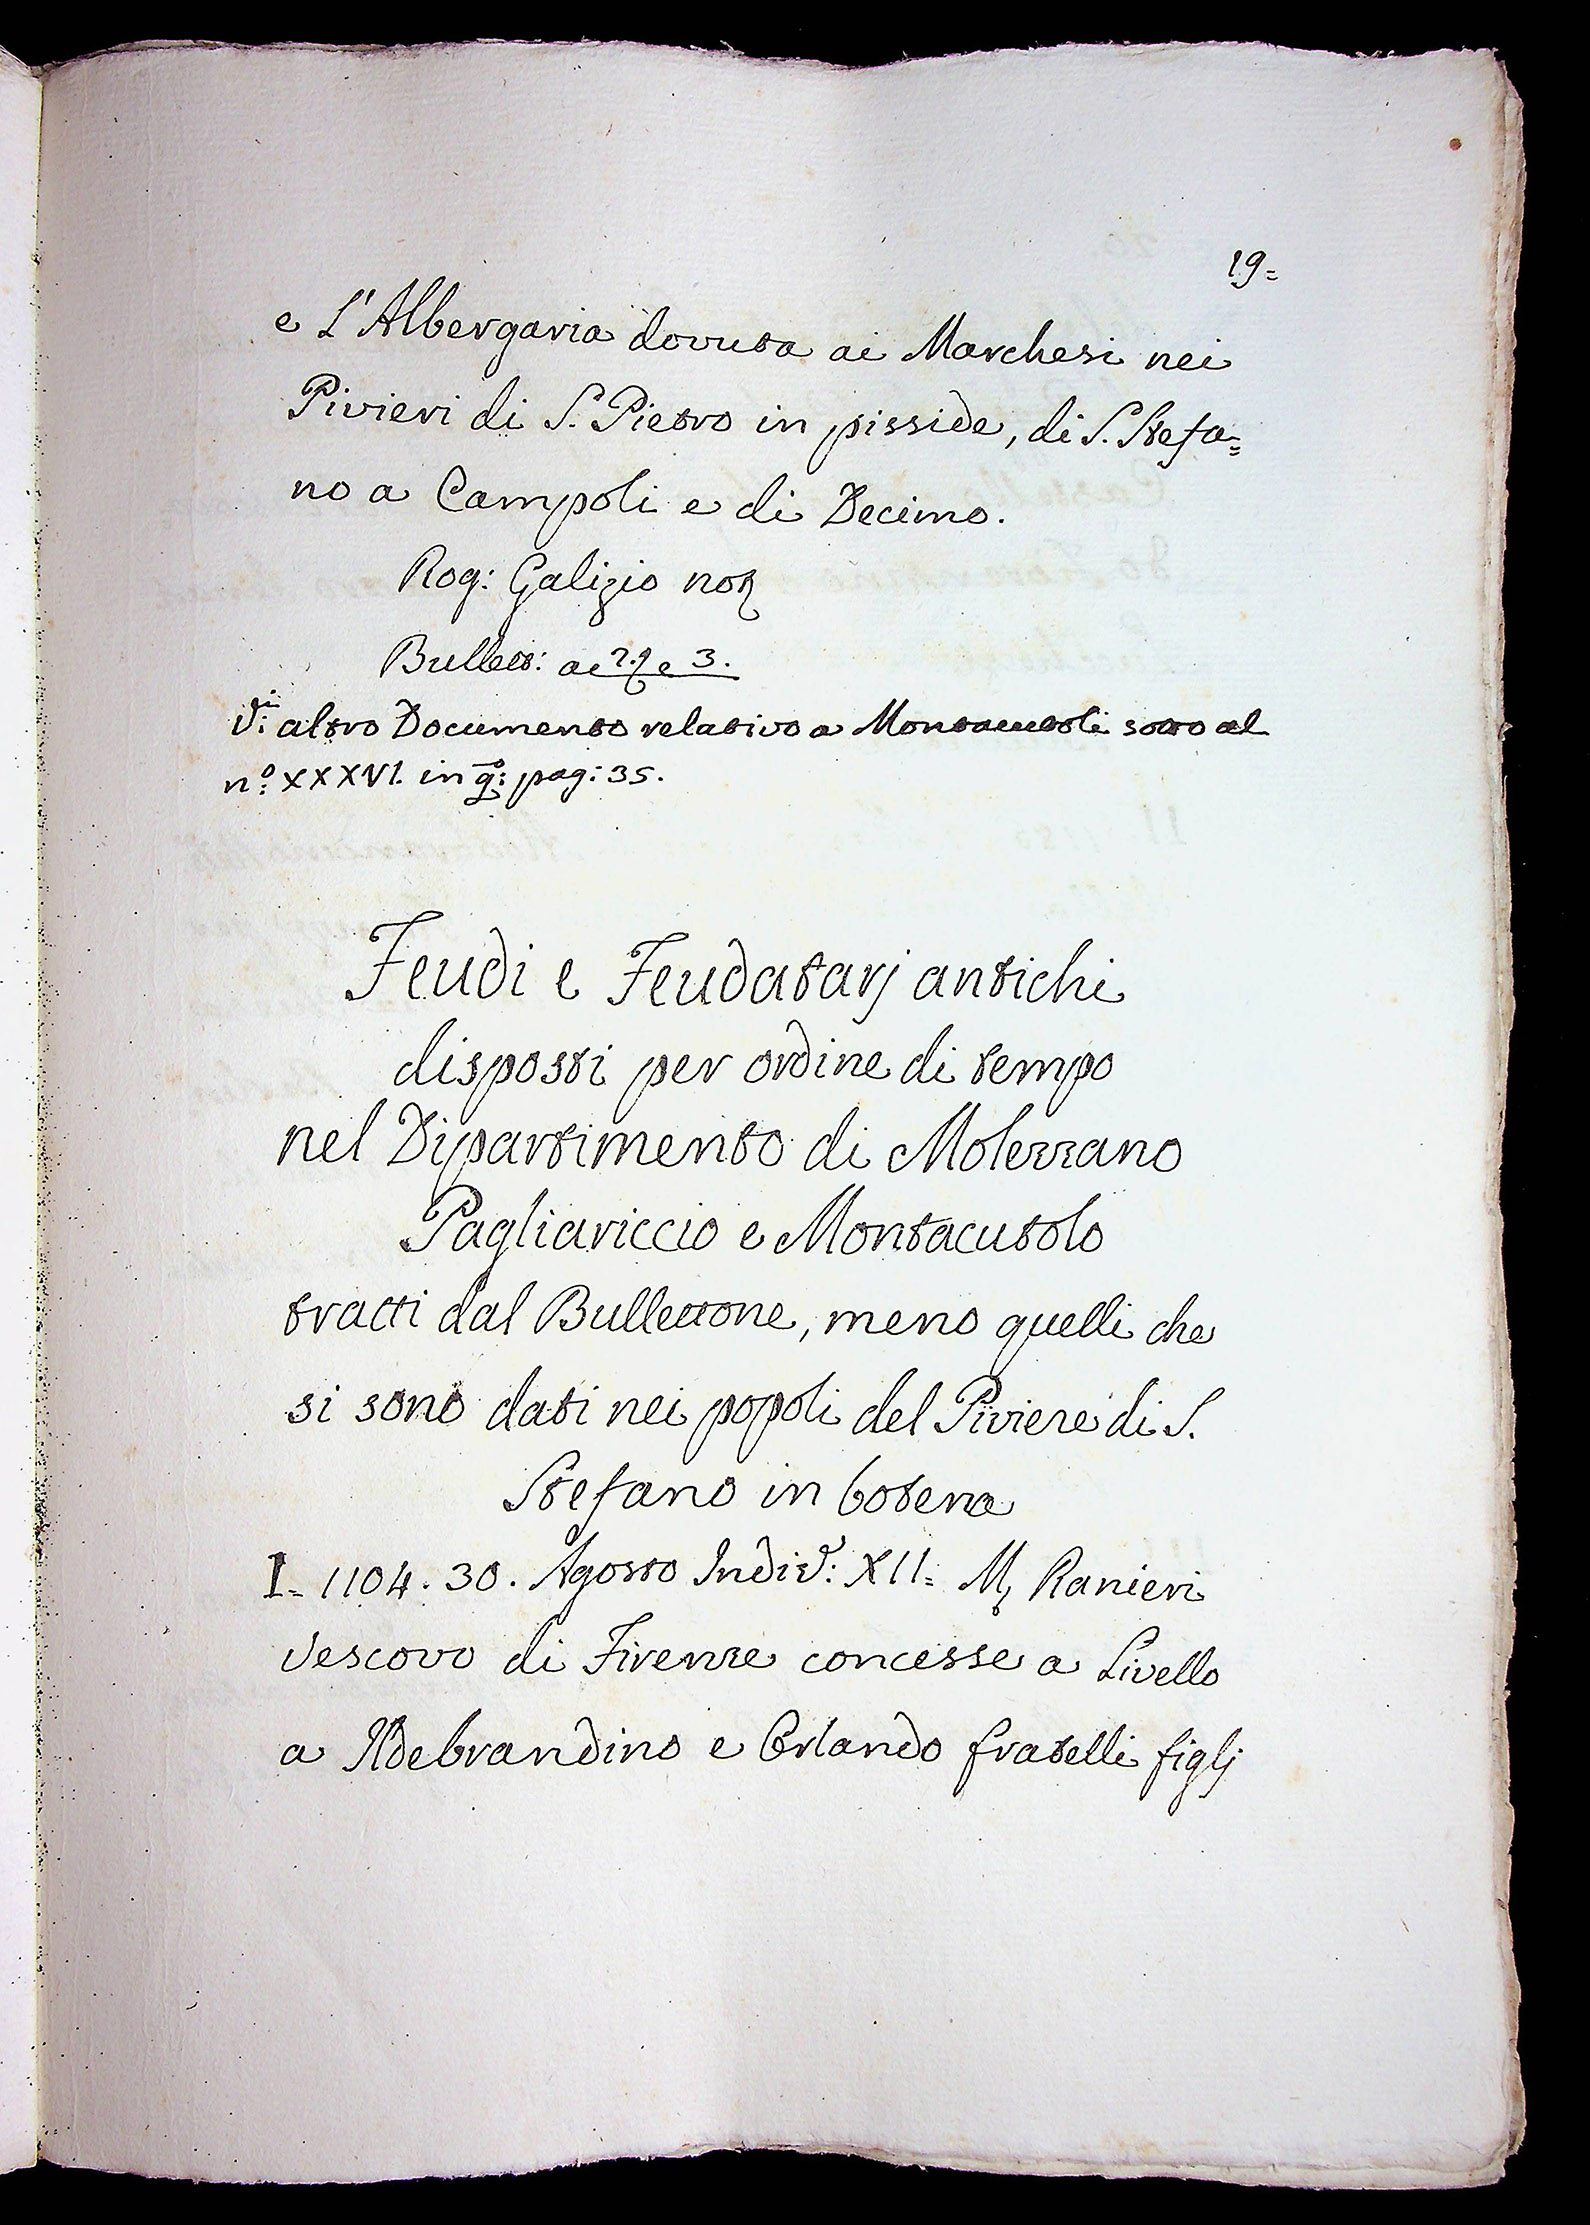 19=
e L'Albergaria dovuta ai Marchesi nei
Pivieri di S. Pietro in pisside, di S. Stefa=
no a Campoli e di Decimo.
Rog: Galizio not
Bullett: a e 3.
Vi: altro Documento relativo a Montacutoli sotto al
n.º XXXVI. in q.º: pag: 35.
Feudi e Feudatarj antichi
disposti per ordine di tempo
nel Dipartimento di Molezzano
Pagliariccio e Montacutolo
tratti dal Bullettone, meno quelli che
si sono dati nei popoli del Piviere di S.
Stefano in botena
I= 1104. 30. Agosto Indiz: XII= M, Ranieri
Vescovo di Firenze concesse a Livello
a Ildebrandino e Orlando fratelli figlj